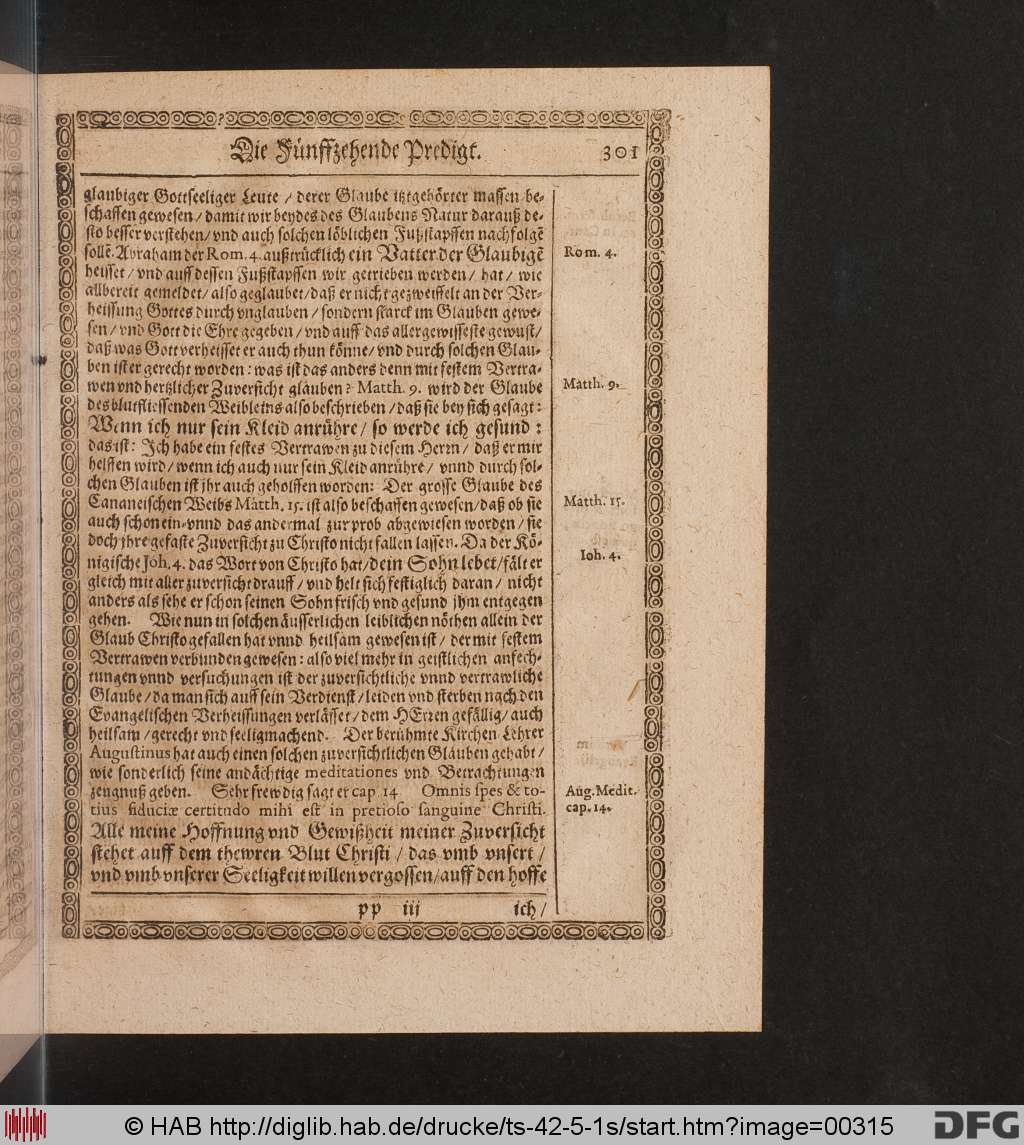 Die Fünffzehende Predigt. 301
glaubiger Gottseeliger Leute / derer Glaube itztgehörter massen / be-
schaffen gewesen / damit wir beydes des Glaubens Natur darauß de-
sto besser verstehen / vnd auch solchen löblichen Fußstapffen nachfolgẽ
sollẽ. Abraham der Rom. 4. außtrücklich ein Vatter der Glaubigẽ
Rom. 4.
heisset / vnd auff dessen Fußstapffen wir getrieben werden / hat / wie
allbereit gemeldet / also geglaubet / daß er nicht gezweiffelt an der Ver-
heissung Gottes durch vnglauben / sondern starck im Glauben gewe-
sen / vnd Gott die Ehre gegeben / vnd auff das allergewisseste gewust /
daß was Gott verheisset er auch thun könne / vnd durch solchen Glau-
ben ist er gerecht worden : was ist das anders denn mit festem Vertra-
wen vnd hertzlicher Zuversicht glauben? Matth. 9. wird der Glaube
Matth. 9.
des blutfliessenden Weibleins also beschrieben / daß sie bey sich gesagt :
Wenn ich nur sein Kleid anrühre / so werde ich gesund :
das ist : Ich habe ein festes Vertrawen zu diesem Herrn / daß er mir
helffen wird / wenn ich auch nur sein Kleid anrühre / vnnd durch sol-
chen Glauben ist jhr auch geholffen worden : Der grosse Glaube des
Cananeischen Weibs Matth. 15. ist also beschaffen gewesen / daß ob sie
Matth. 15.
auch schon ein- vnnd das andermal zur prob abgewiesen worden / sie
doch jhre gefaste Zuversicht zu Christo nicht fallen lassen. Da der Kö-
nigische Joh. 4. das Wort von Christo hat / dein Sohn lebet / fält er
Ioh. 4.
gleich mit aller zuversicht drauff / vnd helt sich festiglich daran / nicht
anders als sehe er schon seinen Sohn frisch vnd gesund jhm entgegen
gehen. Wie nun in solchen äusserlichen leiblichen nöthen allein der
Glaub Christo gefallen hat vnnd heilsam gewesen ist / der mit festem
Vertrawen verbunden gewesen : also viel mehr in geistlichen anfech-
tungen vnnd versuchungen ist der zuversichtliche vnnd vertrawliche
Glaube / da man sich auff sein Verdienst / leiden vnd sterben nach den
Evangelischen Verheissungen verlässet / dem HErren gefällig / auch
heilsam / gerecht vnd seeligmachend. Der berühmte Kirchen Lehrer
Augustinus hat auch einen solchen zuversichtlichen Glauben gehabt /
wie sonderlich seine andächtige meditationes vnd Betrachtungen
zeugnuß geben. Sehr frewdig sagt er cap 14 Omnis spes & to-
Aug. Medit.
tius fiduciæ certitudo mihi est in pretioso sanguine Christi.
cap. 14.
Alle meine Hoffnung vnd Gewißheit meiner Zuversicht
stehet auff dem thewren Blut Christi / das vmb vnsert /
vnd vmb vnserer Seeligkeit willen vergossen / auff den hoffe
pp iii ich /
© HAB http://diglib.hab.de/drucke/ts-42-5-1s/start.htm?image=00315
DFG